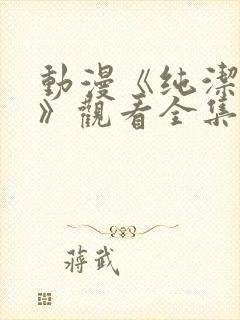 動漫《纯潔
》觀看全集
蔣武